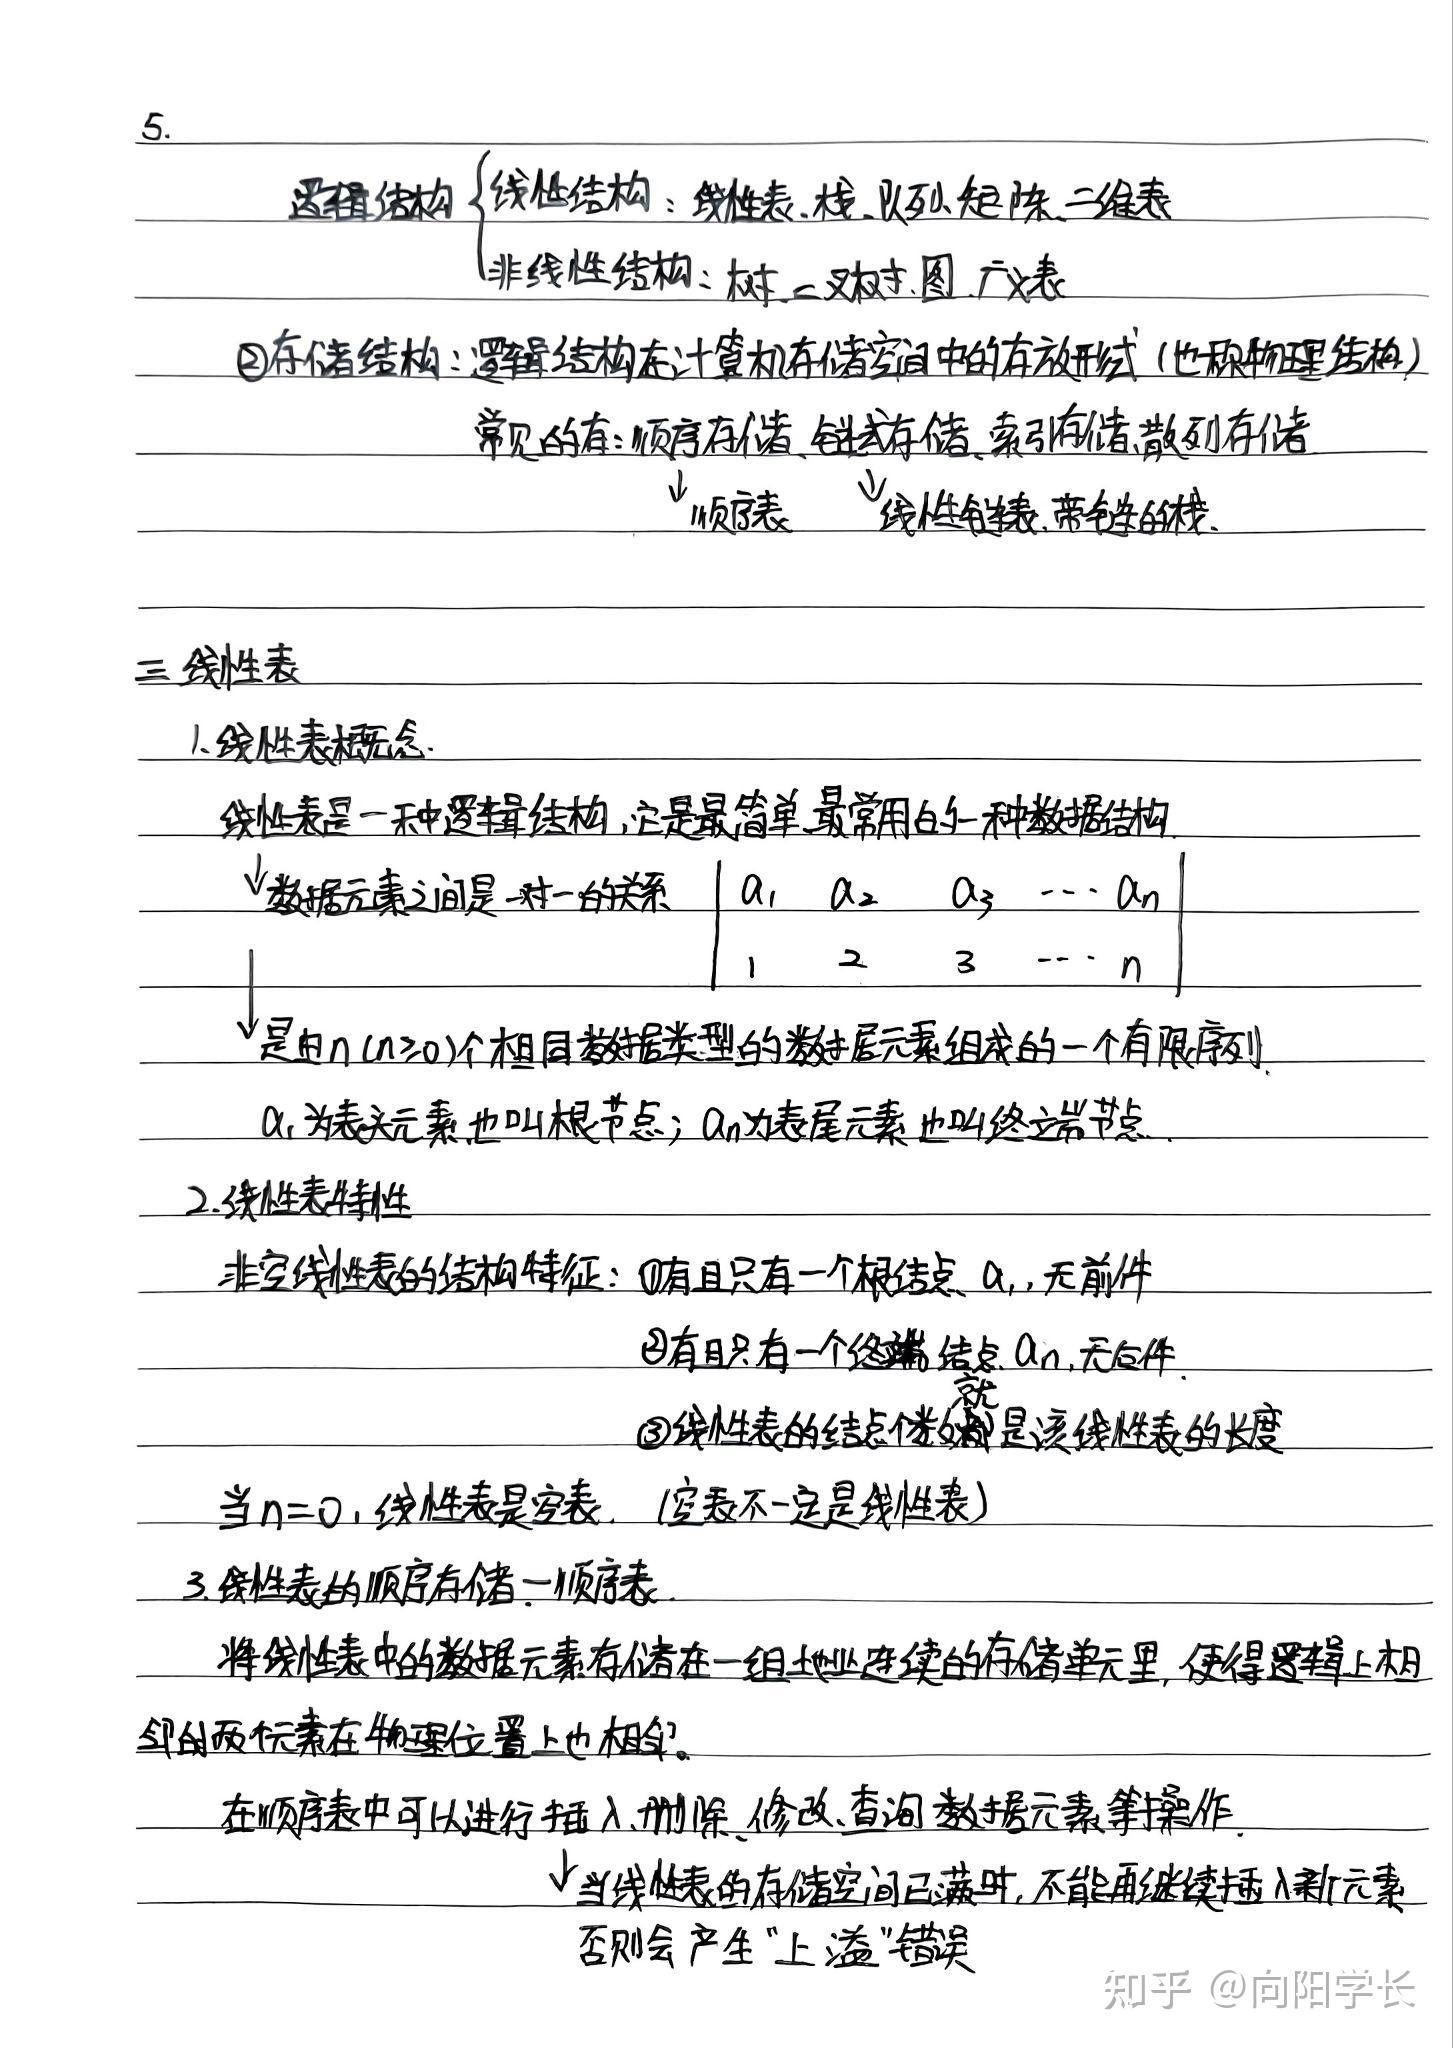 5.
逻辑结构{线性结构：线性表、栈、队列、矩阵、二维表
非线性结构：树、二叉树、图、广义表
②存储结构：逻辑结构在计算机存储空间中的存放形式（也称物理结构）
常见的有：顺序存储、链式存储、索引存储、散列存储
↓顺序表 ↓线性链表、带链的栈.
三 线性表
1.线性表概念.
线性表是一种逻辑结构,它是最简单、最常用的一种数据结构.
↓数据元素之间是一对一的关系 | a₁ a₂ a₃ ··· aₙ |
1 2 3 ··· n
↓是由n(n≥0)个相同数据类型的数据元素组成的一个有限序列.
a₁为表头元素,也叫根节点；aₙ为表尾元素,也叫终端节点.
2.线性表特性
非空线性表的结构特征：①有且只有一个根结点 a₁,无前件
②有且只有一个终端结点 aₙ,无后件.
③线性表的结点个数就是该线性表的长度
当n=0,线性表是空表.（空表不一定是线性表）
3.线性表的顺序存储—顺序表.
将线性表中的数据元素存储在一组地址连续的存储单元里,使得逻辑上相
邻的两个元素在物理位置上也相邻。
在顺序表中可以进行插入、删除、修改、查询数据元素等操作.
↓当线性表的存储空间已满时,不能再继续插入新元素
否则会产生"上溢"错误
知乎 @向阳学长